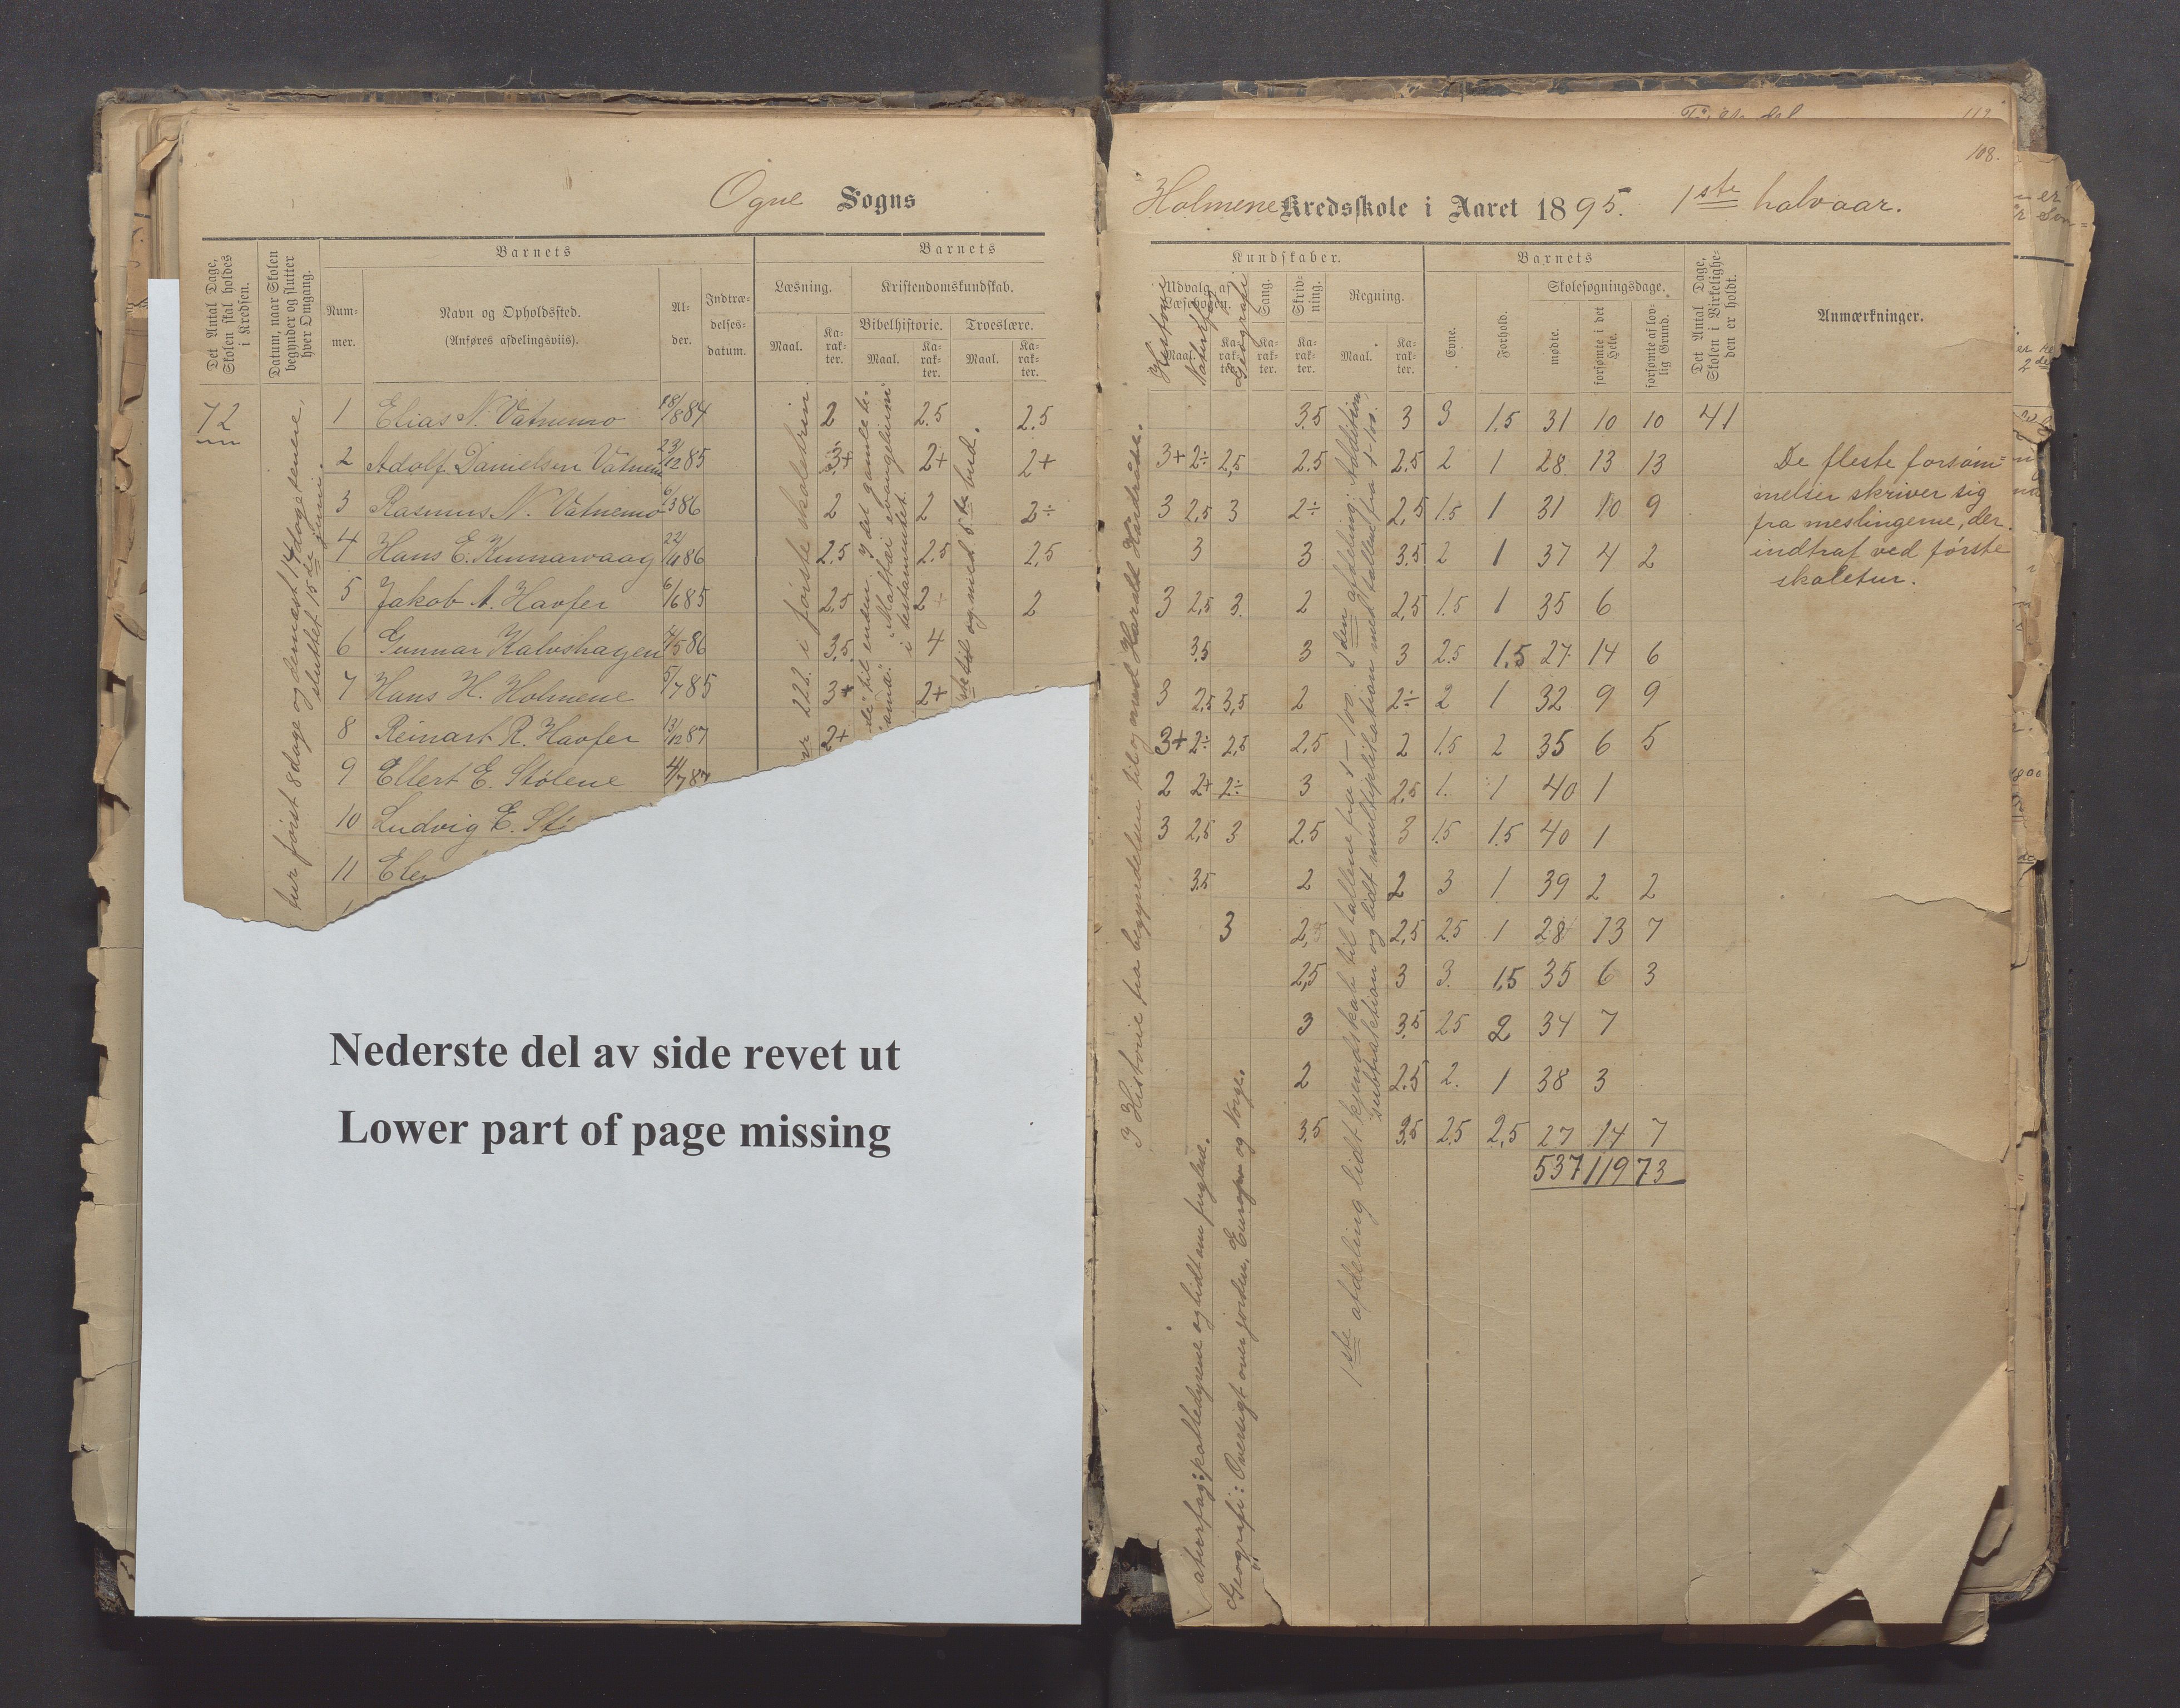 Ogne Sogns
Det Antal Dage, Skolen skal holdes i Kredsen.
Datum, naar Skolen begynder og slutter hver Omgang.
Barnets
Num-mer.
Navn og Opholdssted.
(Anføres afdelingsviis).
Al-der.
Indtræ-delses-datum.
Barnets
Læsning.
Maal.
Ka-rak-ter.
Kristendomskundskab.
Bibelhistorie.
Maal.
Ka-rak-ter.
Troeslære.
Maal.
Ka-rak-ter.
72
1 Elias N. Vatnemo 18/8 84 2 2.5 2.5
2 Adolf Danielsen Vatnemo 23/12 85 3+ 2+ 2+
3 Rasmus N. Vatnemo 6/3 86 2 2 2÷
4 Hans E. Kumarvaag 22/11 86 2.5 2.5 2,5
5 Jakob A. Havfer 6/6 85 2,5 2÷ 2
6 Gunnar Kalvshagen 4/5 86 3.5 4
7 Hans H. Holmene 5/7 85 3+ 2+
8 Reinart R. Havfer 13/12 87 2+
9 Ellert E. Stølene 4/7 87
10 Ludvig E. Stø
11 Elen
tur først 8 dage og dernæst 14 dagetenene,
sluttet 15de juni.
i første skoletrin
Nederste del av side revet ut
Lower part of page missing
108.
Holmene Kredsskole i Aaret 1895. 1ste halvaar.
Kundskaber.
Udvalg af Læsebogen.
Maal.
Ka-rak-ter.
Historie
Naturfag
Geografi
Sang.
Ka-rak-ter.
Skriv-ning.
Ka-rak-ter.
Regning.
Maal.
Ka-rak-ter.
Barnets
Evne.
Forhold.
Skolesøgningsdage.
mødte.
forsømte i det Hele.
forsømte af lov-lig Grund.
Det Antal Dage, Skolen i Virkelighe-den er holdt.
Anmærkninger.
3.5 3 3 1.5 31 10 10 41
3+ 2÷ 2,5 2.5 2.5 2 1 28 13 13
3 2,5 3 2÷ 2,5 1.5 1 31 10 9
3 3 3.5 2 1 37 4 2
3 2,5 3. 2 2,5 1.5 1 35 6
3.5 3 3 2.5 1.5 27 14 6
3 2,5 3,5 2 2÷ 2 1 32 9 9
3+ 2÷ 2,5 2.5 2 1.5 2 35 6 5
2 2+ 2÷ 3 2,5 1. 1 40 1
3 2,5 3 2.5 3 1.5 1.5 40 1
3.5 2 2 3 1 39 2 2
3 2,5 2,5 2.5 1 28 13 7
2,5 3 3. 1.5 35 6 3
3 3.5 2.5 2 34 7
2 2.5 2. 1 38 3
3.5 3.5 2.5 2,5 27 14 7
537 119 73
De fleste forsøm=
melser skriver sig
fra meslingerne, der
indtraf ved første
skoletur.
I Historie fra begyndelsen til og med Harald Haardraade.
Naturfag: pattedyrene og lidt om fuglene.
Geografi: Oversigt over jorden, Europa og Norge.
1ste afdeling lidt kjendskab til tallene fra 1-100. 2den afdeling: Addition,
subtraktion og lidt multiplikation med tallene fra 1-100.